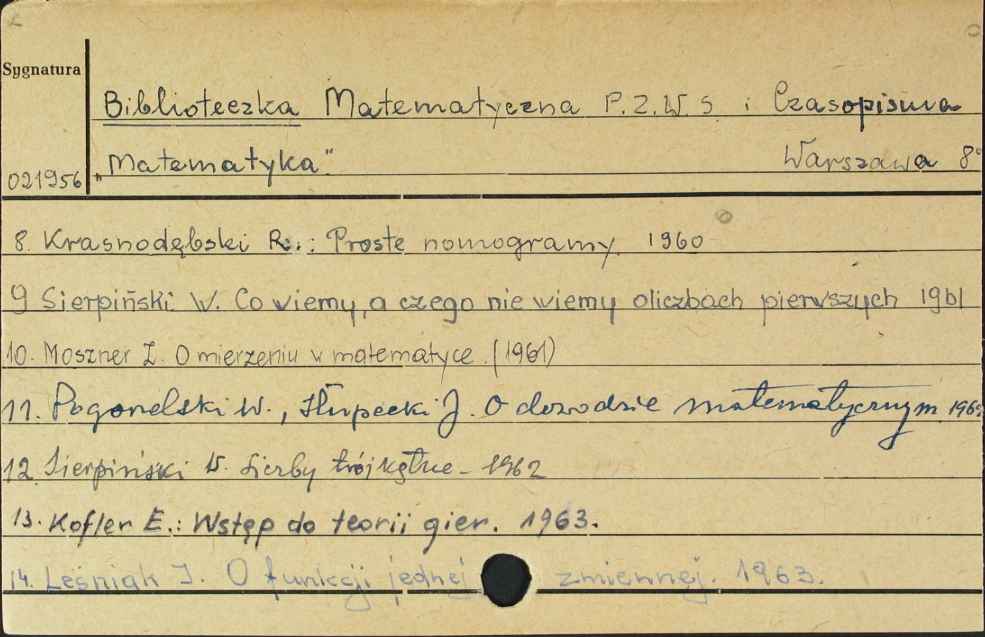 Sygnatura
Biblioteczka Matematyczna P.Z.W.S. i Czasopisma
021956 „Matematyka" Warszawa 8°
8. Krasnodębski R.: Proste nomogramy. 1960
9 Sierpiński W. Co wiemy, a czego nie wiemy oliczbach pierwszych 1961
10. Moszner Z. O mierzeniu w matematyce. (1961)
11. Pogorzelski W., Słupecki J. O dowodzie matematycznym 1962
12. Sierpiński W. Liczby trójkątne - 1962
13. Kofler E.: Wstęp do teorii gier. 1963.
14. Leśniak J. O funkcji jednej zmiennej. 1963.